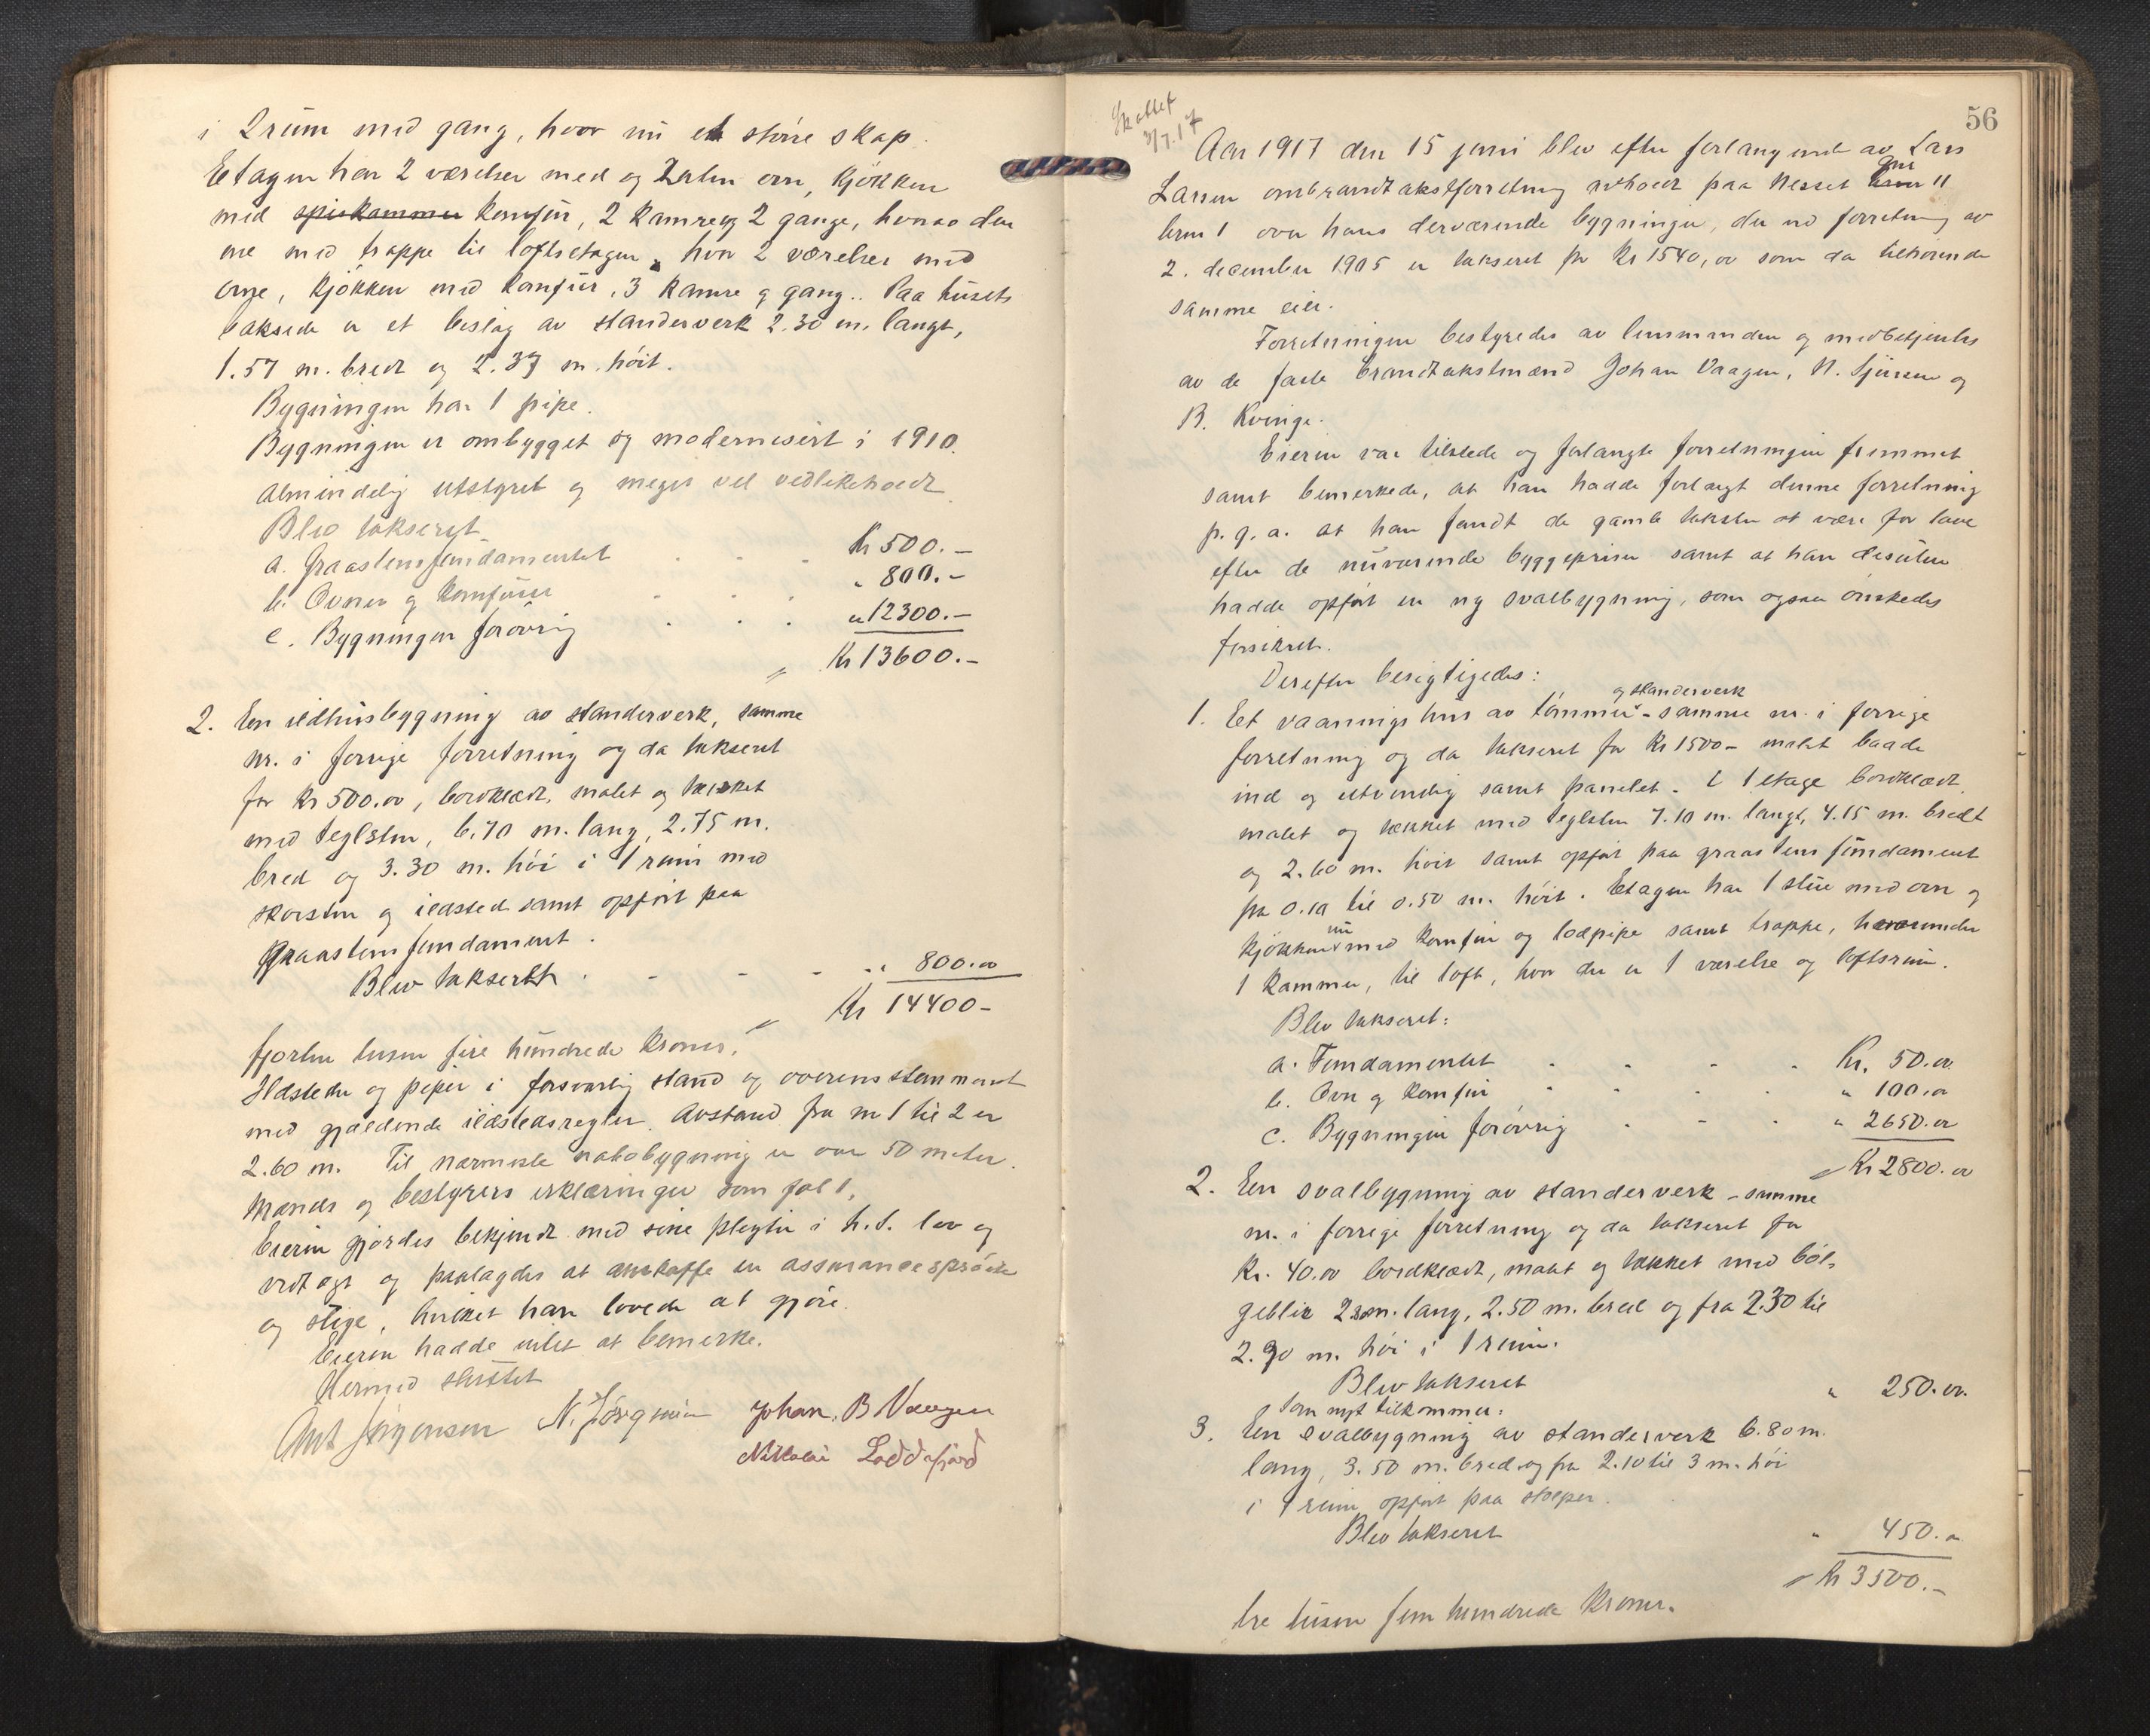 i 2 rum med gang, hvor nu et större skap.
Etagen har 2 værelser med og uten ovn, kjökken
med spiskammer komfür, 2 kamre og 2 gange, hvorav den
ene med trappe til loftsetagen, hvor 2 værelser med
ovne, kjökken med komfür, 3 kamre og gang.. Paa husets
bakside er et beslag av standerverk 2.30 m. langt,
1.57 m. bredt og 2.37 m. höit.
Bygningen har 1 pipe.
Bygningen er ombygget og modernisert i 1910.
Almindelig utstyret og meget vel vedlikeholdt.
Blev taksert
a. Graastensfundamentet . - - Kr 500.-
b. Ovner og komfürer . . . " 800.-
c. Bygningen forövrig . . . " 12300.-
" Kr 13600.-
2. En ildhusbygning av standerverk, samme
nr. i forrige forretning og da taksert
for Kr 500.00, bordklædt, malet og tækket
med teglsten, 6.70 m. lang, 2.75 m.
bred og 3.30 m. höi i 1 rum med
skorsten og ildsted samt opfört paa
graastensfundament.
Blev taksert . - - - " 800.00
" Kr 14400-
fjorten tusen fire hundrede kroner.
Ildsteder og piper i forsvarlig stand og overensstemmende
med gjældende ildstedsregler. Avstand fra nr 1 til 2 er
2.60 m. Til nærmeste nabobygning er over 50 meter.
Mænds og bestyrers erklæringer som fol 1.
Eieren gjordes bekjendt med sine pligter i h. t. lov og
vedtægt og paalagdes at anskaffe en assurancespröite
og stige, hvilket han lovede at gjöre.
Eieren hadde intet at bemerke.
Hermed sluttet
Ant Jörgensen N. Johan. B Vaagen
Nikolai Loddefjord
Skattet
3/7.17
56
Aar 1917 den 15 juni blev efter forlangende av Lars
Larsen ombrandtakstforretning avholdt paa Nesset gnr 11
brnr 1 over hans derværende bygninger, der ved forretning av
2. december 1905 er taksert for Kr 1540,00 som da tilhörende
samme eier.
Forretningen bestyredes av lensmanden og medbetjentes
av de faste brandtakstmænd Johan Vaagen, N. og
B. Kvinge.
Eieren var tilstede og forlangte forretningen fremmet
samt bemerkede, at han hadde forlangt denne forretning
p. g. a. at han fandt de gamle takster at være for lave
efter de nuværende byggepriser samt at han desuten
hadde opfört en ny svalbygning, som ogsaa önskedes
forsikret.
Derefter besigtigedes:
og standerverk
1. Et vaaningshus av tömmer - samme nr. i forrige
forretning og da taksert for Kr 1500- malet baade
ind og utvendig samt panelet. I 1 etage bordklædt,
malet og tækket med teglsten 7.10 m. langt, 4.15 m. bredt
og 2.60 m. höit samt opfört paa graastensfundament
fra 0.10 til 0.50 m. höit. Etagen har 1 stue med ovn og
kjökken med komfür og lodpipe samt trappe, hvorunder
1 kammer, til loft, hvor der er 1 værelse og loftsrum.
Blev taksert:
a. Fundamentet . - - . Kr. 50.00
b. Ovn og komfür . . . . " 100.00
c. Bygningen forövrig . - . " 2650.00
" Kr 2800.00
2. En svalbygning av standerverk - samme
nr. i forrige forretning og da taksert for
Kr. 40.00 bordklædt, malet og tækket med böl-
geblik m. lang, 2.50 m. bred og fra 2.30 til
2.90 m. höi i 1 rum.
Blev taksert " 250.00.
Som nyt tilkommer:
3. En svalbygning av standerverk 6.80 m.
lang, 3.50 m. bred og fra 2.10 til 3 m. höi
i 1 rum opfört paa stolper.
Blev taksert " 450.00
" Kr 3500.-
tre tusen fem hundrede kroner.